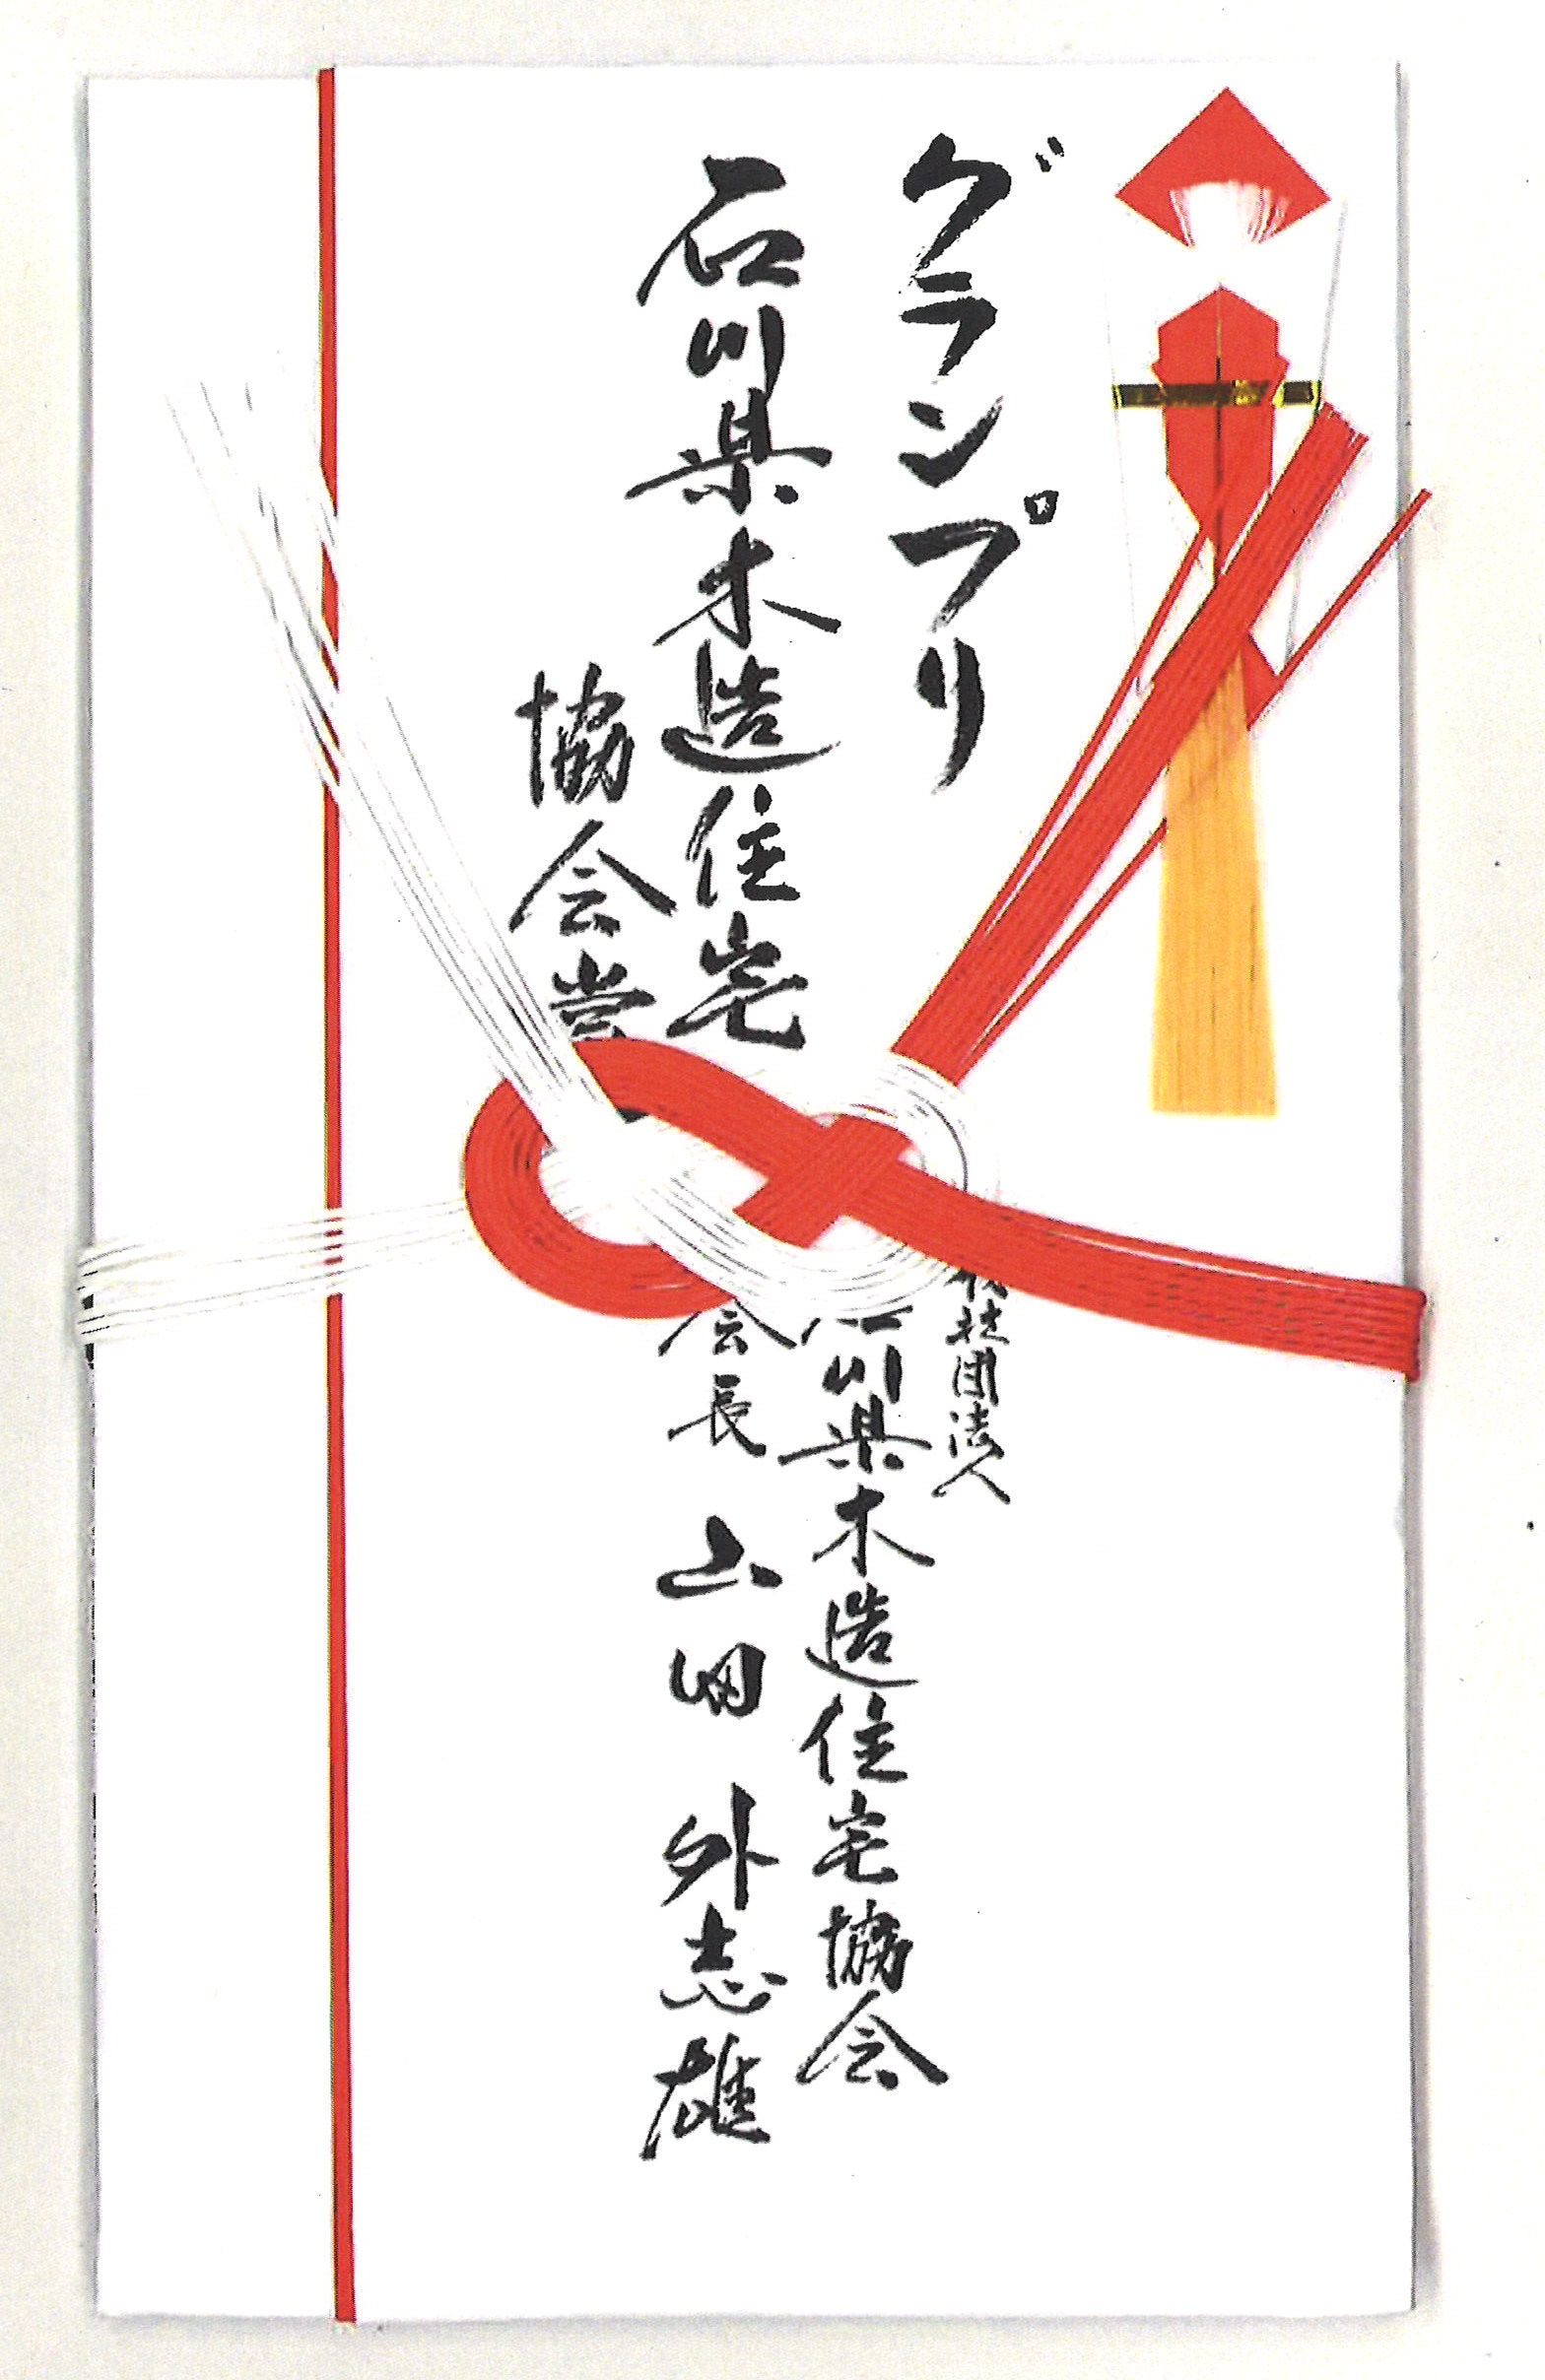 グランプリ
石川県木造住宅
協会賞
般社団法人
石川県木造住宅協会
会長 山田 外志雄